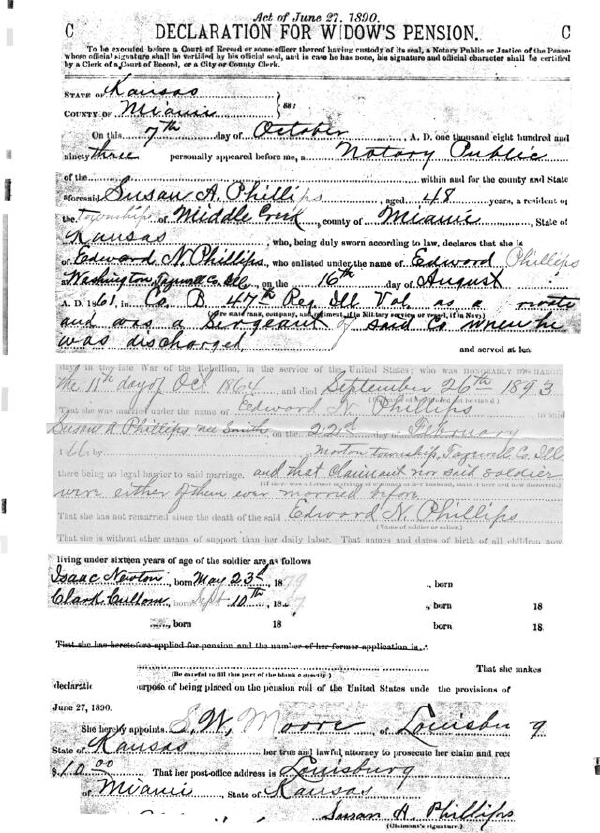 Act of June 27, 1890.
C DECLARATION FOR WIDOW'S PENSION. C
To be executed before a Court of Record or some officer thereof having custody of its seal, a Notary Public or Justice of the Peace
whose official signature shall be verified by his official seal, and in case he has none, his signature and official character shall be certified
by a Clerk of a Court of Record, or a City or County Clerk.
STATE OF Kansas
COUNTY OF Miami ss:
On this 7th day of October, A. D. one thousand eight hundred and
ninety three personally appeared before me, a Notary Public
of the within and for the county and State
aforesaid Susan A. Phillips, aged 48 years, a resident of
the Township of Middle Creek, county of Miami, State of
Kansas, who, being duly sworn according to law, declares that she is
of Edward N Phillips, who enlisted under the name of Edword Phillips
at Washington, Tazwell Co. Ill., on the 16th day of August
A. D. 1861, in Co. B 47th Reg Ill Vol as a
(Here state rank, company, and regiment, if in Military service, or vessel, if in Navy.)
and was a Sergeant of said Co when he
was discharged, and served at lea
days in the late War of the Rebellion, in the service of the United States; who was HONORABLY DISCHARGED
the 11th day of Oct. 1864 and died September 26th 1893
That she was married under the name of Edward N. Phillips to said
Susan A Phillips nee Smith, on the 22d day of February
by Morton township, Tazwell Co. Ill
there being no legal barrier to said marriage. and that claimant nor said soldier
were either of them ever married before
That she has not remarried since the death of the said Edward N. Phillips
(Name of soldier or sailor.)
That she is without other means of support than her daily labor. That names and dates of birth of all children now
living under sixteen years of age of the soldier are as follows
Isaac Newton, born May 23d, 18 , born
Clark Cullom, born Sept 10th, 18 , born 18
, born 18 born 18
That she has heretofore applied for pension and the number of her former application is
(Be careful to fill this part of the blank correctly) That she makes
declaratio urpose of being placed on the pension roll of the United States unde the provisions of
June 27, 1890.
She hereby appoints S. W. Moore, of Louisbu g
State of Kansas her true and lawful attorney to prosecute her claim and rece
$10.00 That her post-office address is Louisburg
of Miami, State of Kansas
Susan A. Phillips
(Claimant's signature.)